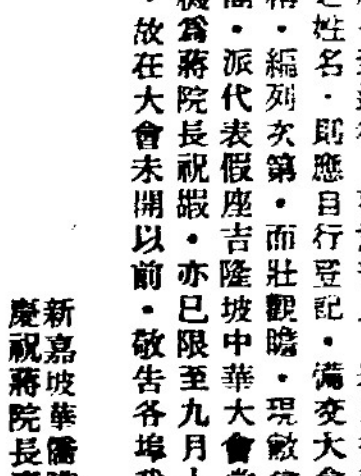 姓名・則應自行登記・備交大會
・編列次第・而壯觀瞻・現敝
・派代表假座吉隆坡中華大會
爲蔣院長祝嘏・亦已限至九月
・故在大會未開以前・敬告各埠
新嘉坡華僑
慶祝蔣院長